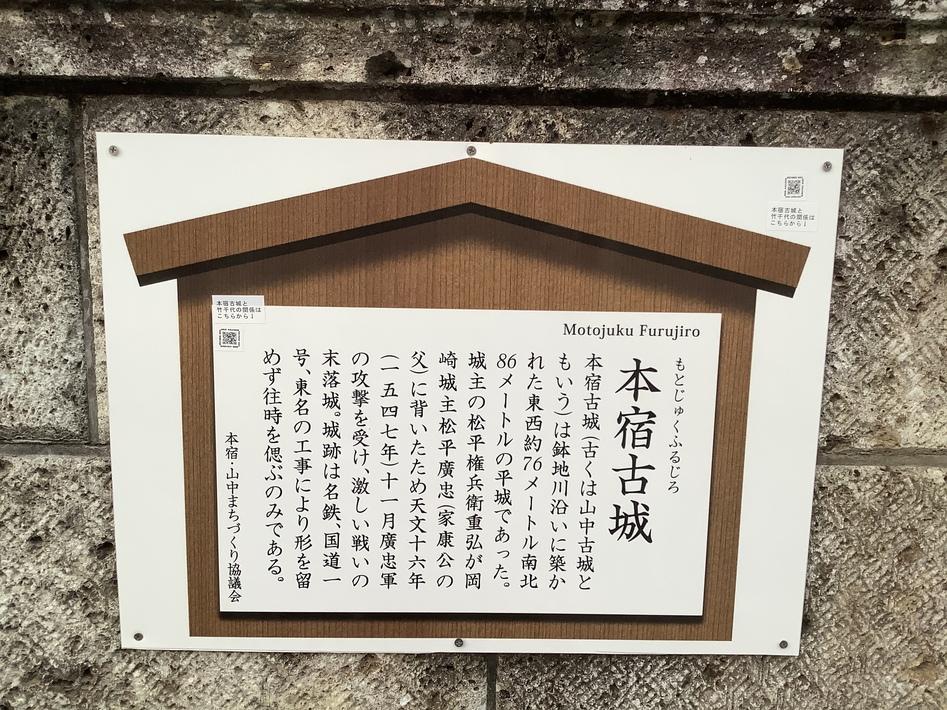 本宿古城と
竹千代の関係は
こちらから↓
Motojuku Furujiro
もとじゅくふるじろ
本宿古城
本宿古城(古くは山中古城と
もいう)は鉢地川沿いに築か
れた東西約76メートル南北
86メートルの平城であった。
城主の松平権兵衛重弘が岡
崎城主松平廣忠(家康公の
父)に背いたため天文十六年
(一五四七年)十一月廣忠軍
の攻撃を受け、激しい戦いの
末落城。城跡は名鉄、国道一
号、東名の工事により形を留
めず往時を偲ぶのみである。
本宿・山中まちづくり協議会
本宿古城と
竹千代の関係は
こちらから↓